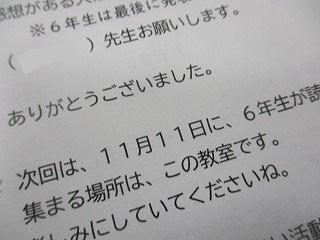 感想がある人
※６年生は最後に発表
（　　　　）先生お願いします。
ありがとうございました。
次回は、１１月１１日に、６年生が読
集まる場所は、この教室です。
楽しみにしていてくださいね。
い活動